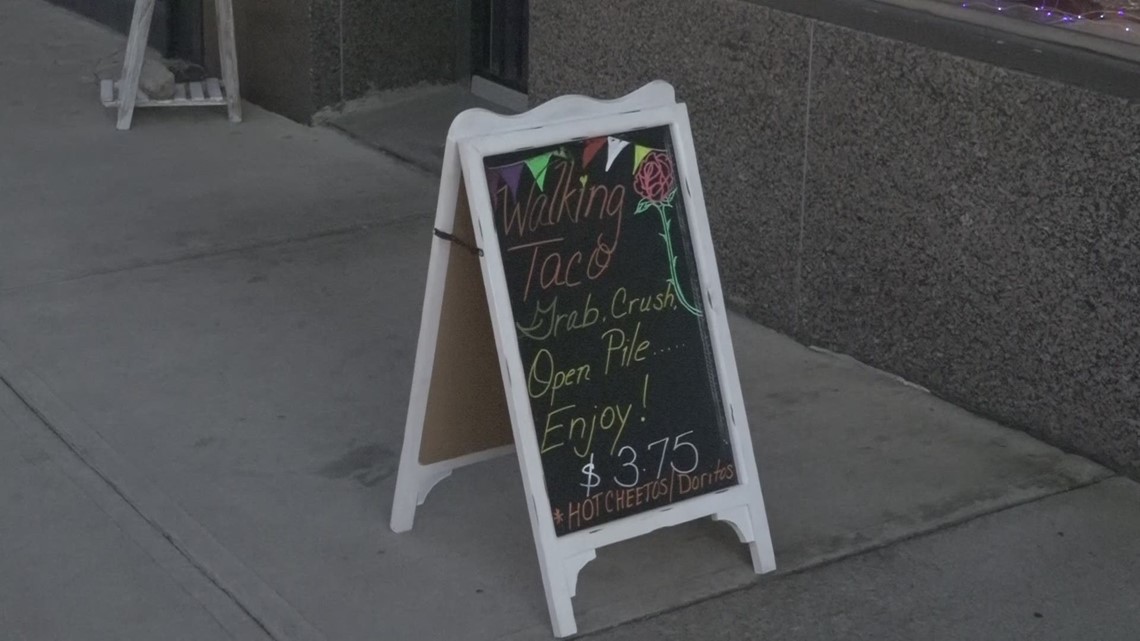 Walking
Taco
Grab. Crush.
Open Pile.....
Enjoy!
$3.75
*HOT CHEETOS/Doritos